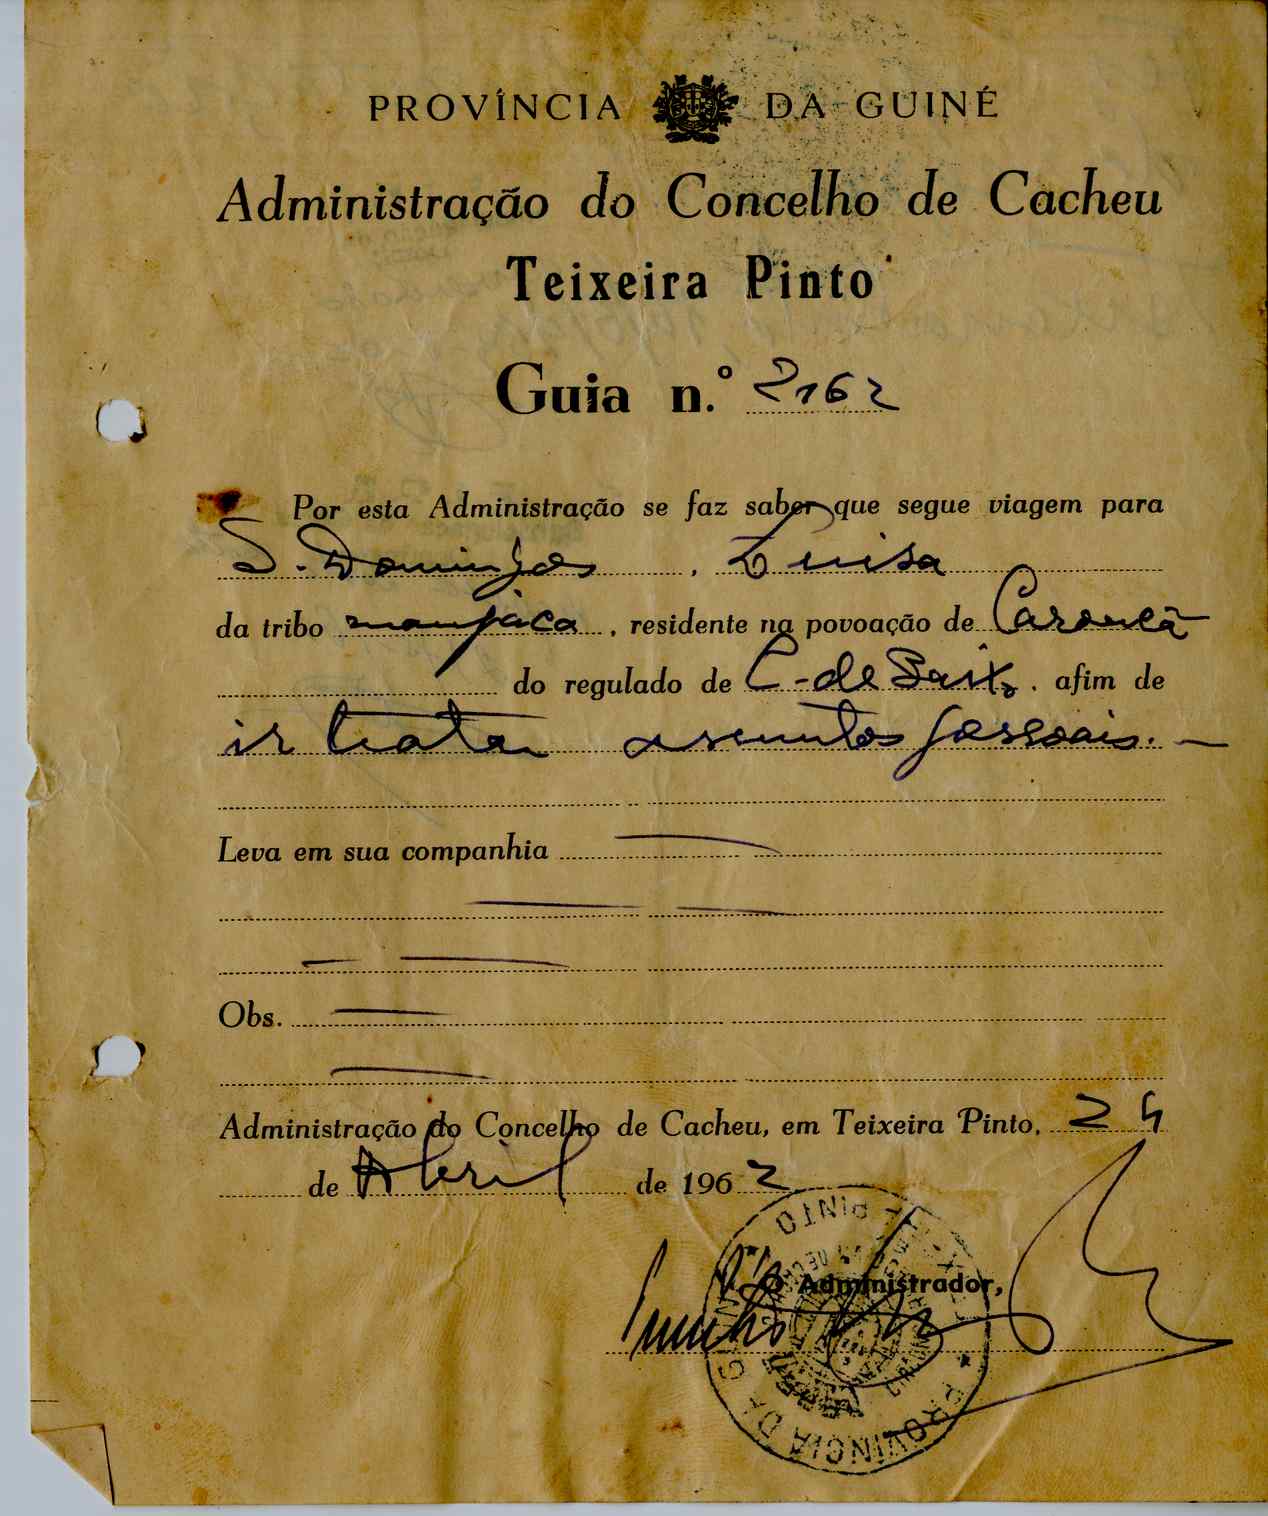 PROVÍNCIA DA GUINÉ
Administração do Concelho de Cacheu
Teixeira Pinto
Guia n.º 2162
Por esta Administração se faz saber que segue viagem para
S. Domingos, Luisa
da tribo manjaca, residente na povoação de
do regulado de C. de Baixo, afim de
ir tratar assuntos pessoais.
Leva em sua companhia
Obs.
Administração do Concelho de Cacheu, em Teixeira Pinto, 24
de Abril de 1962
O Administrador,
PROVÍNCIA DA GUINÉ